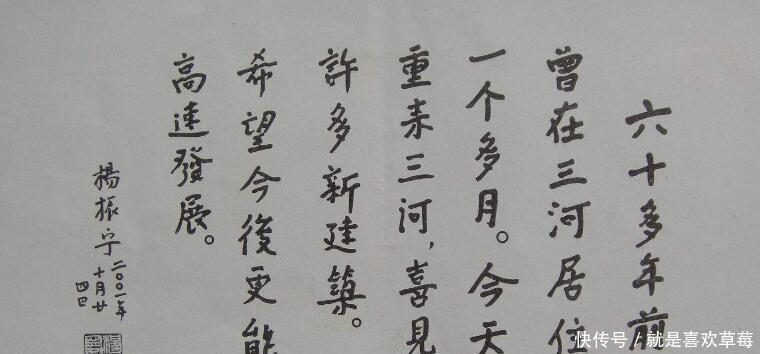 六十多年前
曾在三河居住
一个多月。今天
重来三河，喜見
許多新建築。
希望今後更能
高速發展。
楊振宁
二〇〇一年
十月廿
四日
快传号/就是喜欢草莓